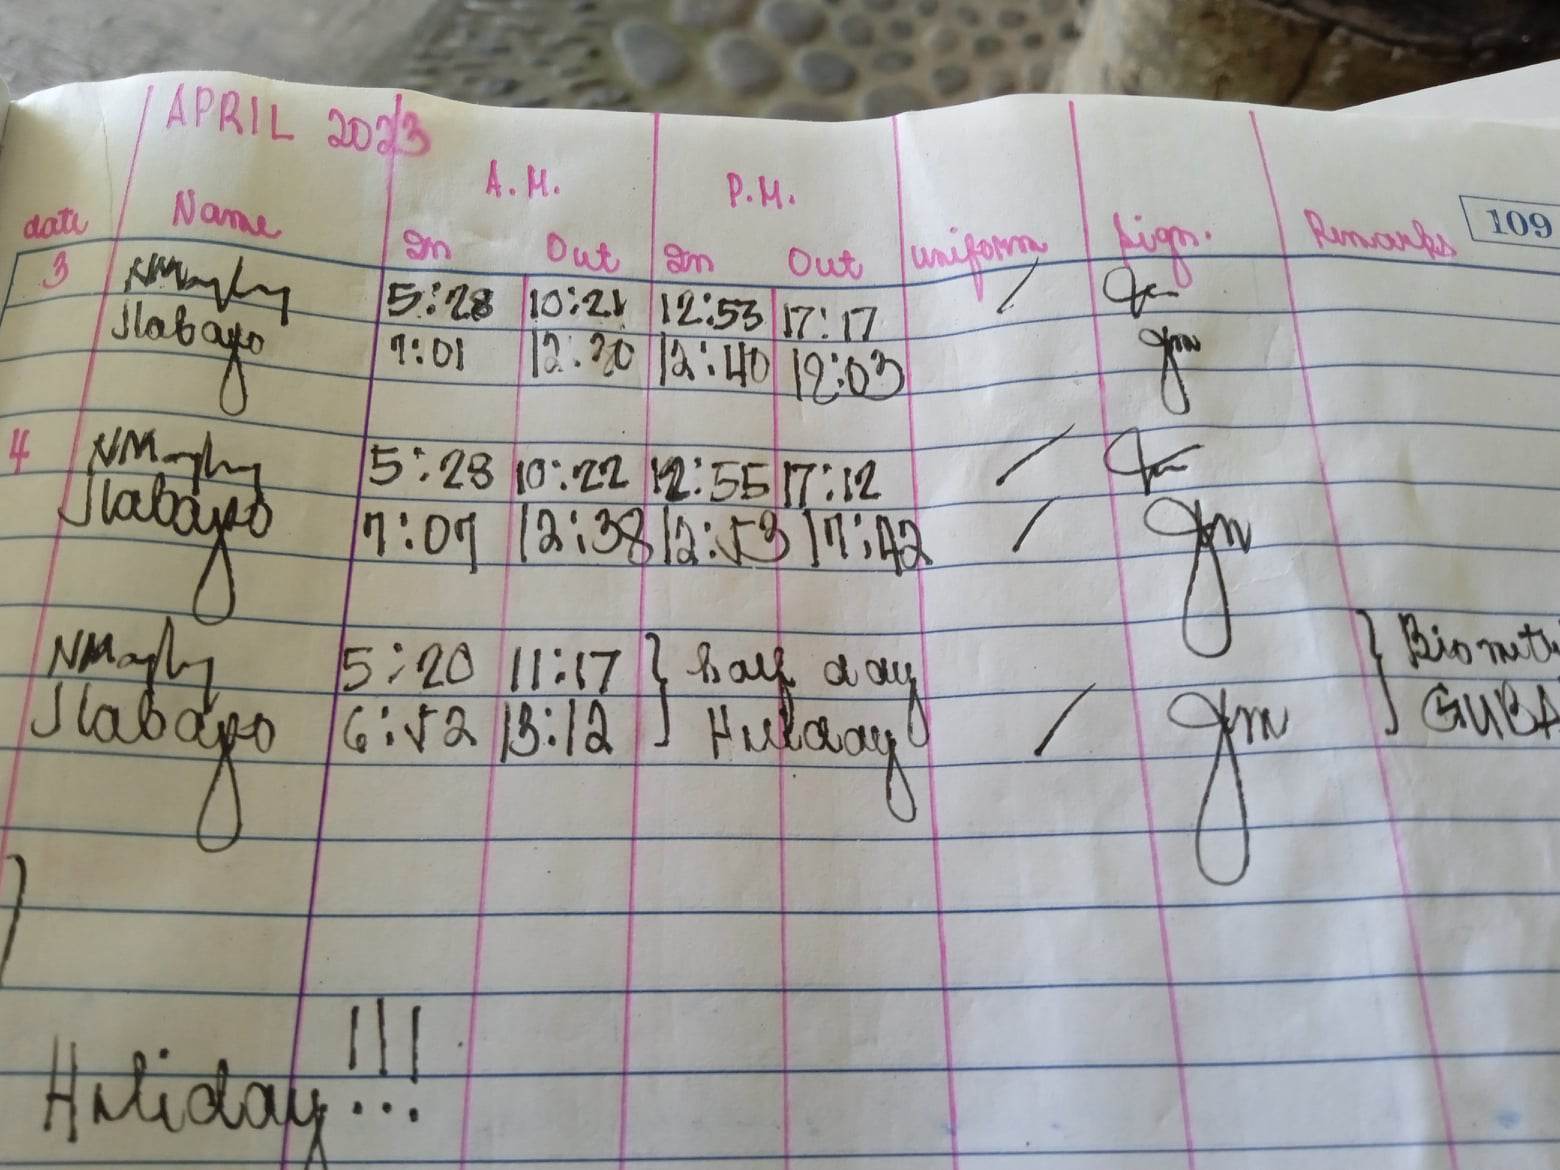 APRIL 2023
A.M. P.M.
109
date Name In Out In Out uniform Sign. Remarks
3 5:28 10:21 12:53 17:17 /
Jlabayo 7:01 12:20 12:40 12:03
4 5:28 10:22 12:55 17:12 /
Jlabayo 7:07 12:38 12:53 17:42 /
5:20 11:17 } half day }
Jlabayo 6:52 13:12 Holiday / GUBA
Holiday...!!!